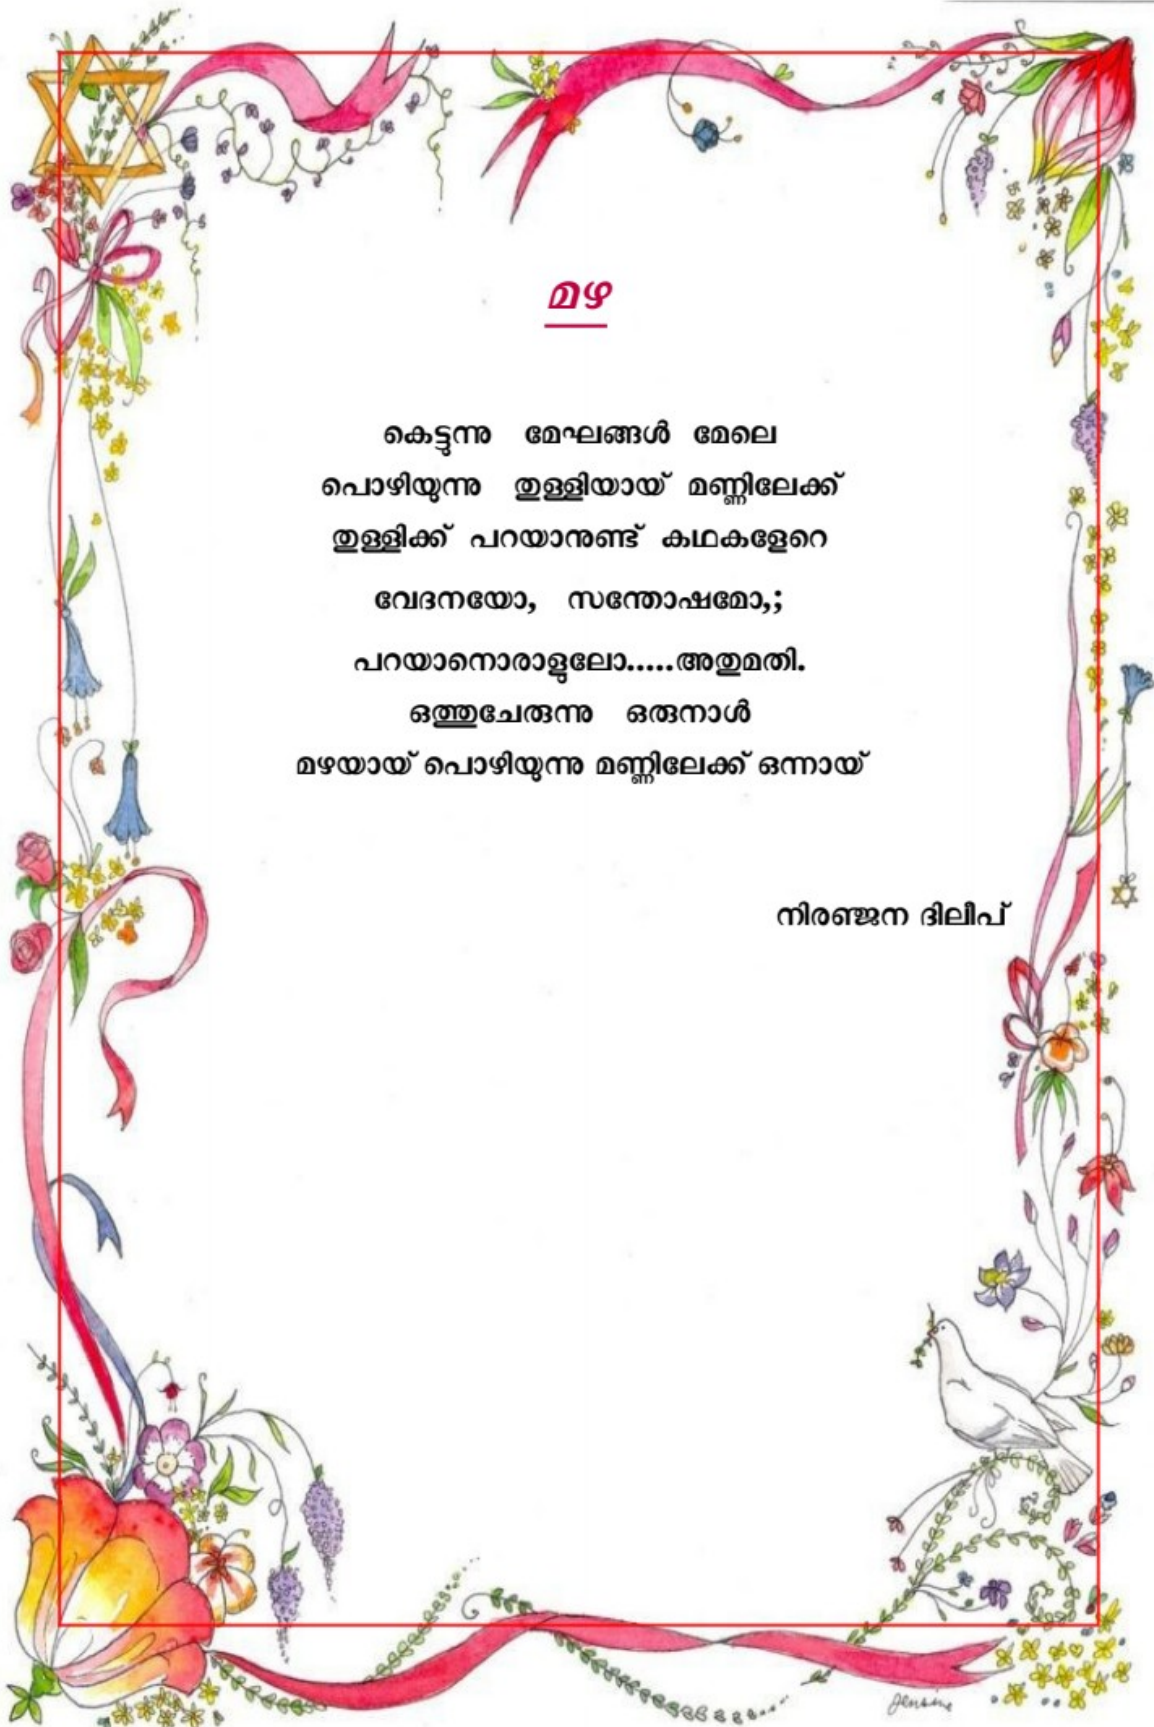 മഴ
കെട്ടുന്നു മേഘങ്ങൾ മേലെ
പൊഴിയുന്നു തുള്ളിയായ് മണ്ണിലേക്ക്
തുള്ളിക്ക് പറയാനുണ്ട് കഥകളേറെ
വേദനയോ, സന്തോഷമോ,;
പറയാനൊരാളുലോ.....അതുമതി.
ഒത്തുചേരുന്നു ഒരുനാൾ
മഴയായ് പൊഴിയുന്നു മണ്ണിലേക്ക് ഒന്നായ്
നിരഞ്ജന ദിലീപ്